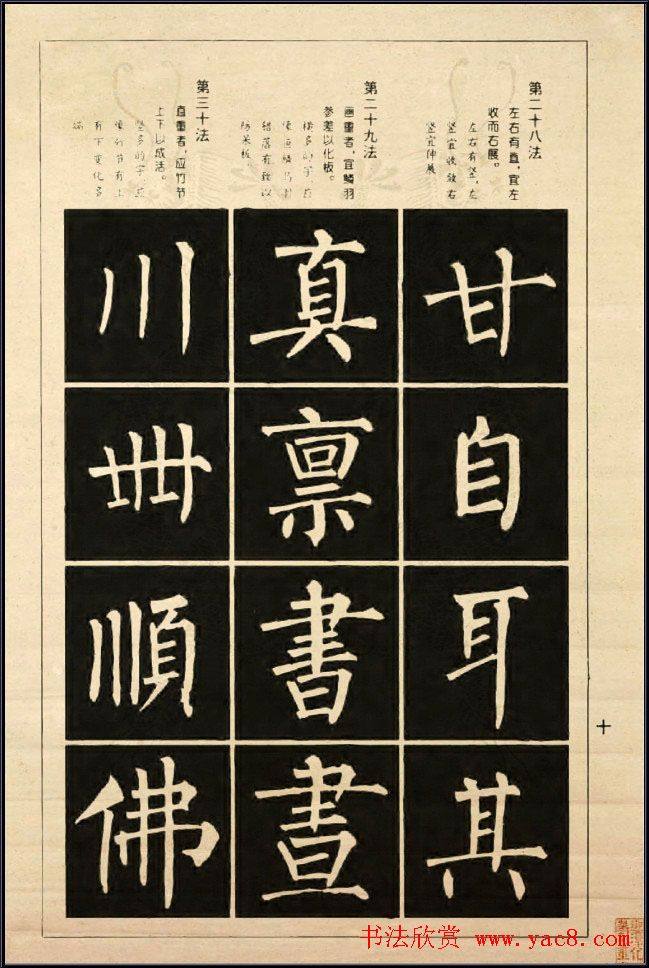 第二十八法
左右有直，宜左
收而右展。
左右有竖，左
竖宜收敛右
竖宜伸展
甘
自
耳
其
第二十九法
画重者，宜鳞羽
参差以化板。
横多的字，应
像鱼鳞鸟羽
错落有致以
防呆板
真
禀
書
晝
第三十法
直重者，应竹节
上下以成活。
竖多的字，应
像竹节有上
有下变化多
端
川
卌
順
佛
十
书法欣赏 www.yac8.com